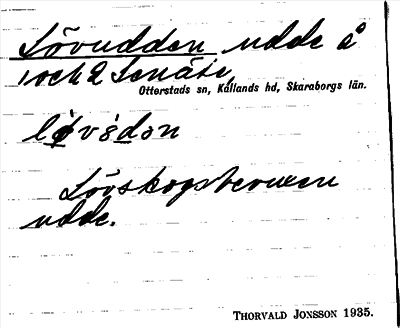 Lövudden udde å
1 och 2 Senäte,
Otterstads sn, Kållands hd, Skaraborgs län.
Lövskogsbevuxen
udde.
THORVALD JONSSON 1935.